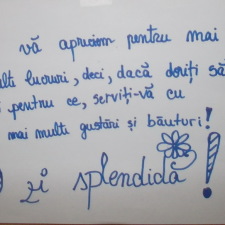 vă apreciem pentru mai
lte lucruri, deci, dacă doriți să
pentru ce, serviți-vă cu
mai multe gustări și băuturi!
zi splendidă!